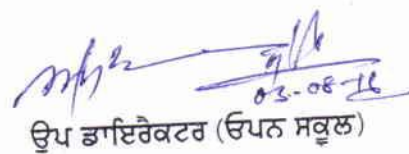 03-08-16
ਉਪ ਡਾਇਰੈਕਟਰ (ਓਪਨ ਸਕੂਲ)